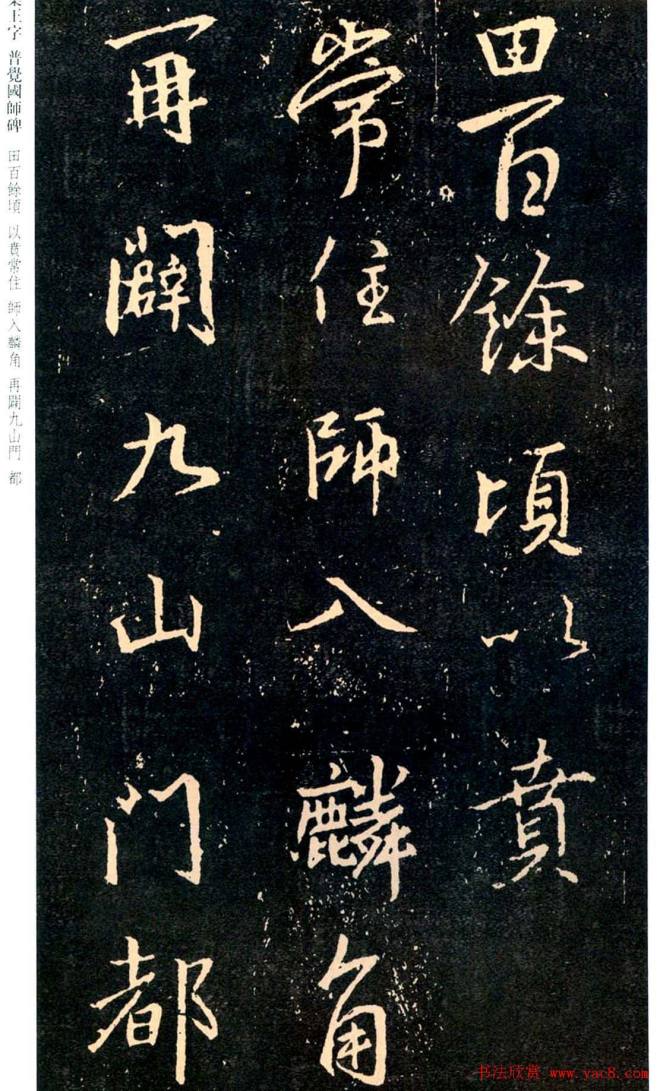 田百餘頃以賁
常住師入麟角
再闢九山門都
集王字 普覺國師碑 田百餘頃 以賁常住 師入麟角 再闢九山門 都
书法欣赏 www.yac8.com